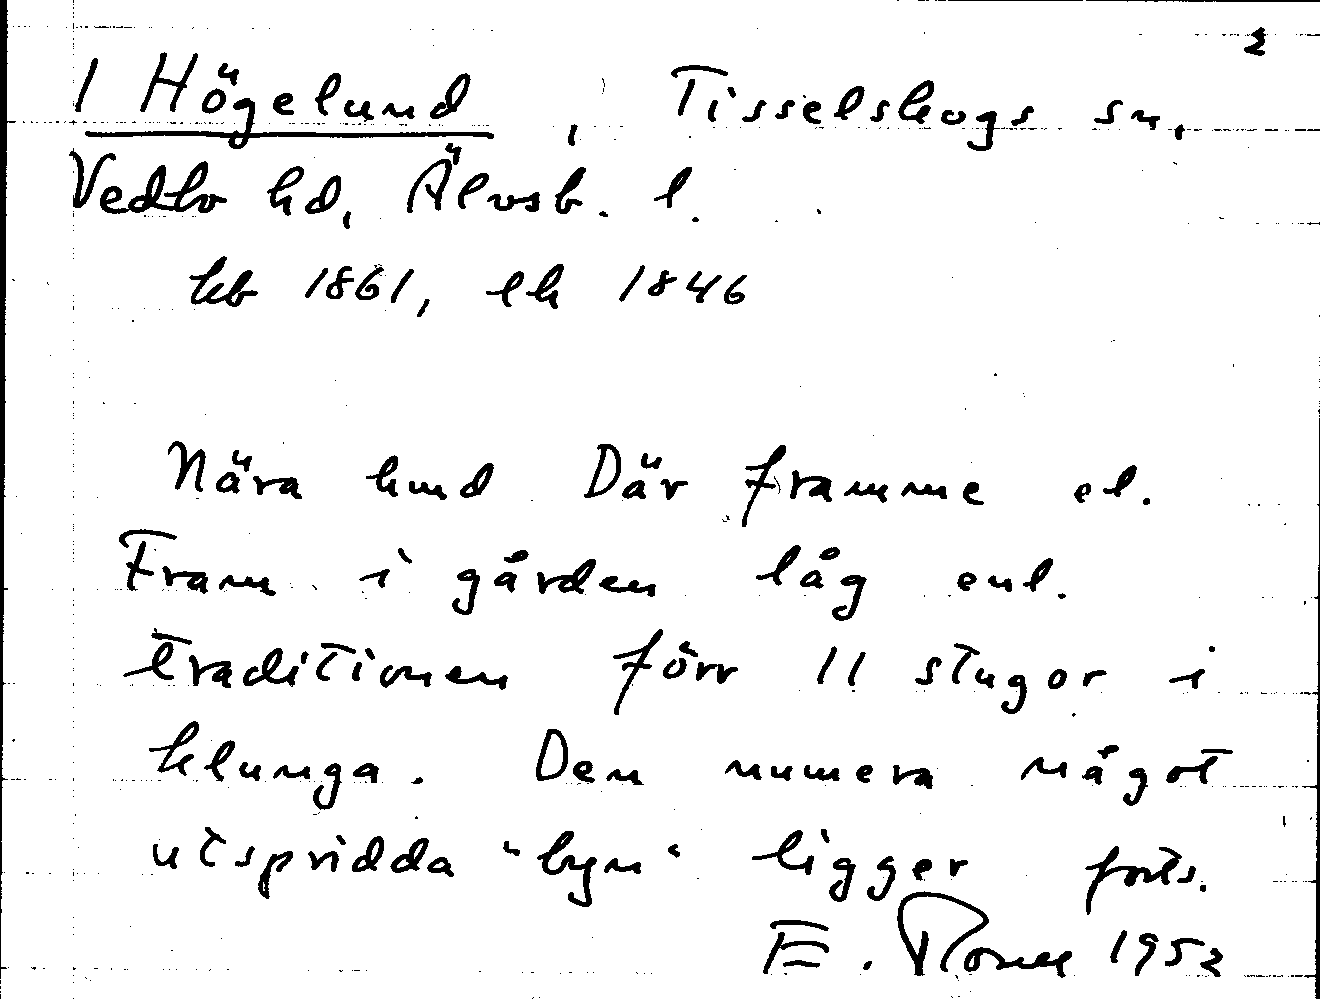 2
1 Högelund, Tisselskogs sn,
Vedbo hd, Älvsb. l.
kb 1861, ek 1846
Nära kund Där framme el.
Fram i gården låg enl.
traditionen förr 11 stugor i
klunga. Den numera något
utspridda "byn" ligger forts.
E. 1952